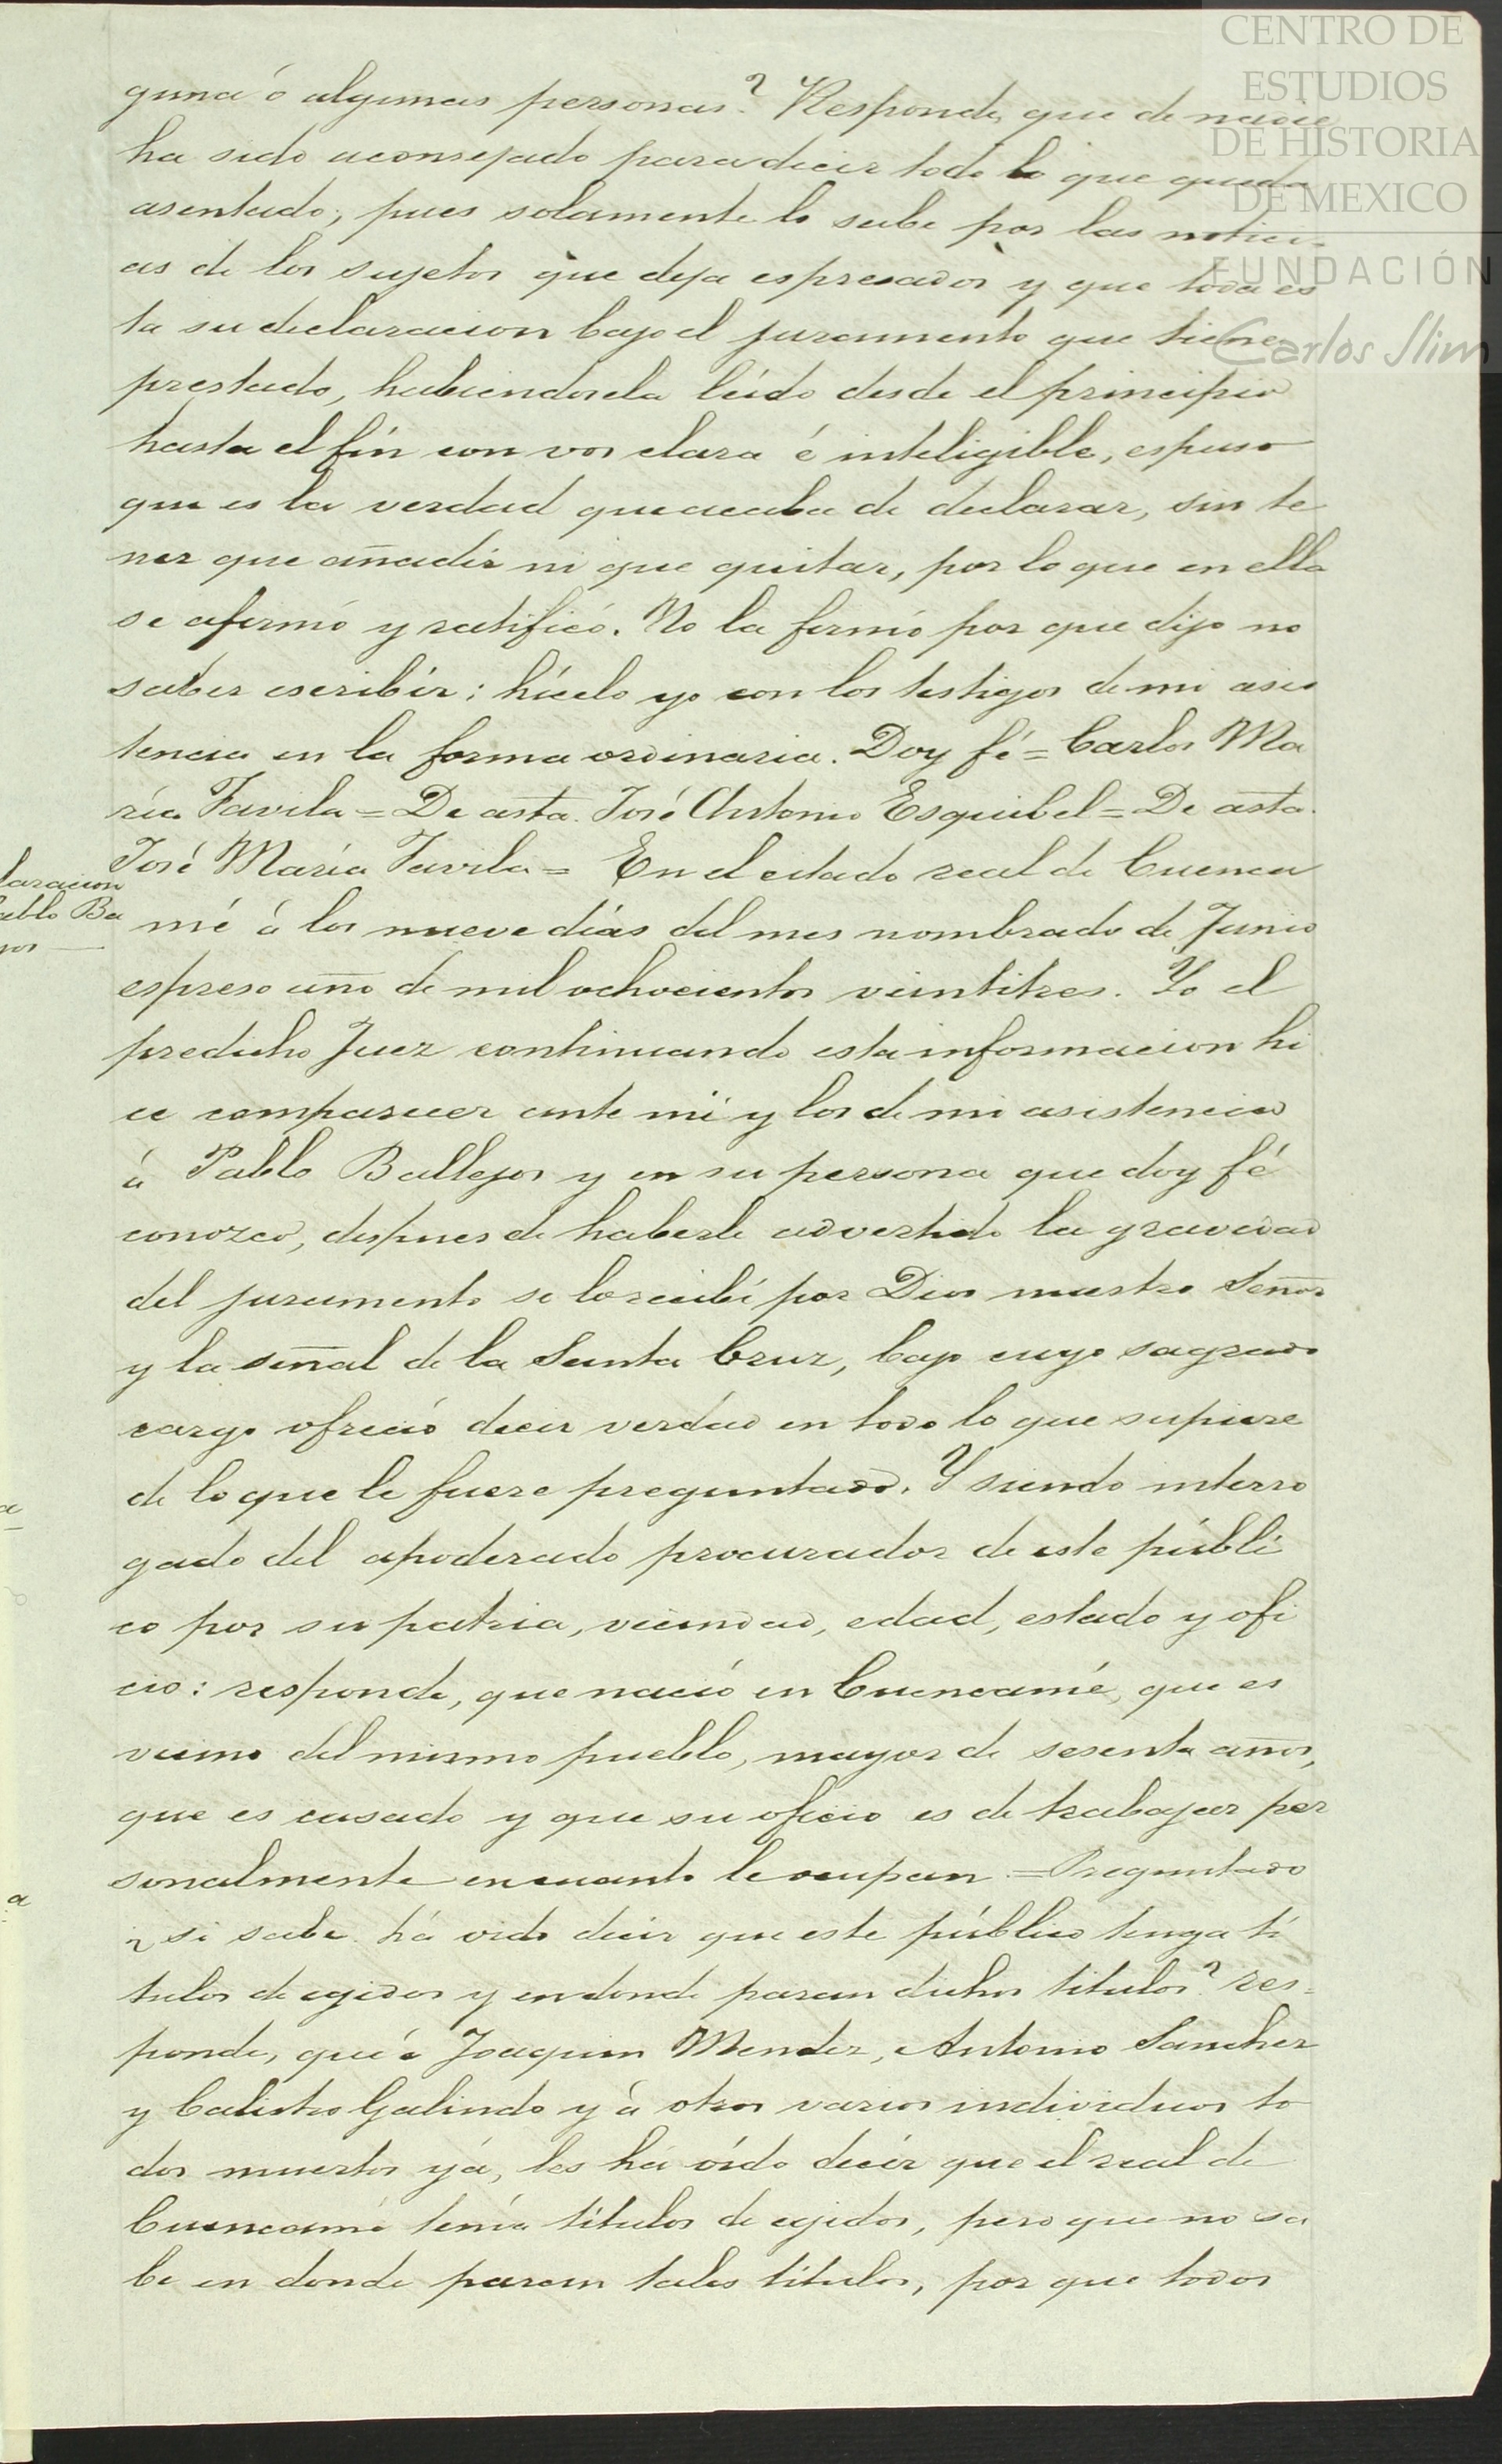 CENTRO DE
ESTUDIOS
DE HISTORIA
DE MEXICO
FUNDACIÓN
Carlos Slim
guna ó algunas personas? Responde, que de nadie
ha sido aconsejado para decir todo lo que queda
asentado; pues solamente lo sabe por las notici-
as de los sujetos que deja espresados y que toda es
ta su declaracion bajo el juramento que tiene
prestado, habiendosela leído desde el principio
hasta el fín con vos clara é inteligible, espuso
que es la verdad que acaba de declarar, sin te
ner que añadir ni que quitar, por lo que en ella
se afirmó y ratificó. No la firmó por que dijo no
saber escribír; hícelo yo con los testigos de mi asis
tencia en la forma ordinaria. Doy fé = Carlos Ma
ría Favila = De asta. José Antonio Esquibel = De asta.
José María Favila = En el citado real de Cuenca
laracion
ablo Ba
jos
mé á los nueve días del mes nombrado de Junio
espreso año de mil ochocientos veintitres. Yo el
predicho Juez continuando esta informacion hi
ce comparecer ante mí y los de mi asistencia
á Pablo Ballejos y en su persona que doy fé
conozco, despues de haberle advertido la gravedad
del juramento se lo recibí por Dios nuestro Señor
y la señal de la Santa Cruz, bajo cuyo sagrado
cargo ofreció decir verdad en todo lo que supiere
de lo que le fuere preguntado. Y siendo interro
gado del apoderado procurador de este públi
co por su patria, vecindad, edad, estado y ofi
cio: responde, que nació en Cuencamé, que es
vecino del mismo pueblo, mayor de sesenta años,
que es casado y que su oficio es de trabajar per
sonalmente en cuanto le ocupan = Preguntado
¿si sabe há oido decir que este público tenga tí
tulos de egidos y en donde paran dichos titulos? res-
ponde, que á Joaquin Mendez, Antonio Sanchez
y Calistro Galindo y á otros varios individuos to
dos muertos yá, les há oído decír que el real de
Cuencamé tenía títulos de egidos, pero que no sa
be en donde paran tales títulos, por que todos
a
a